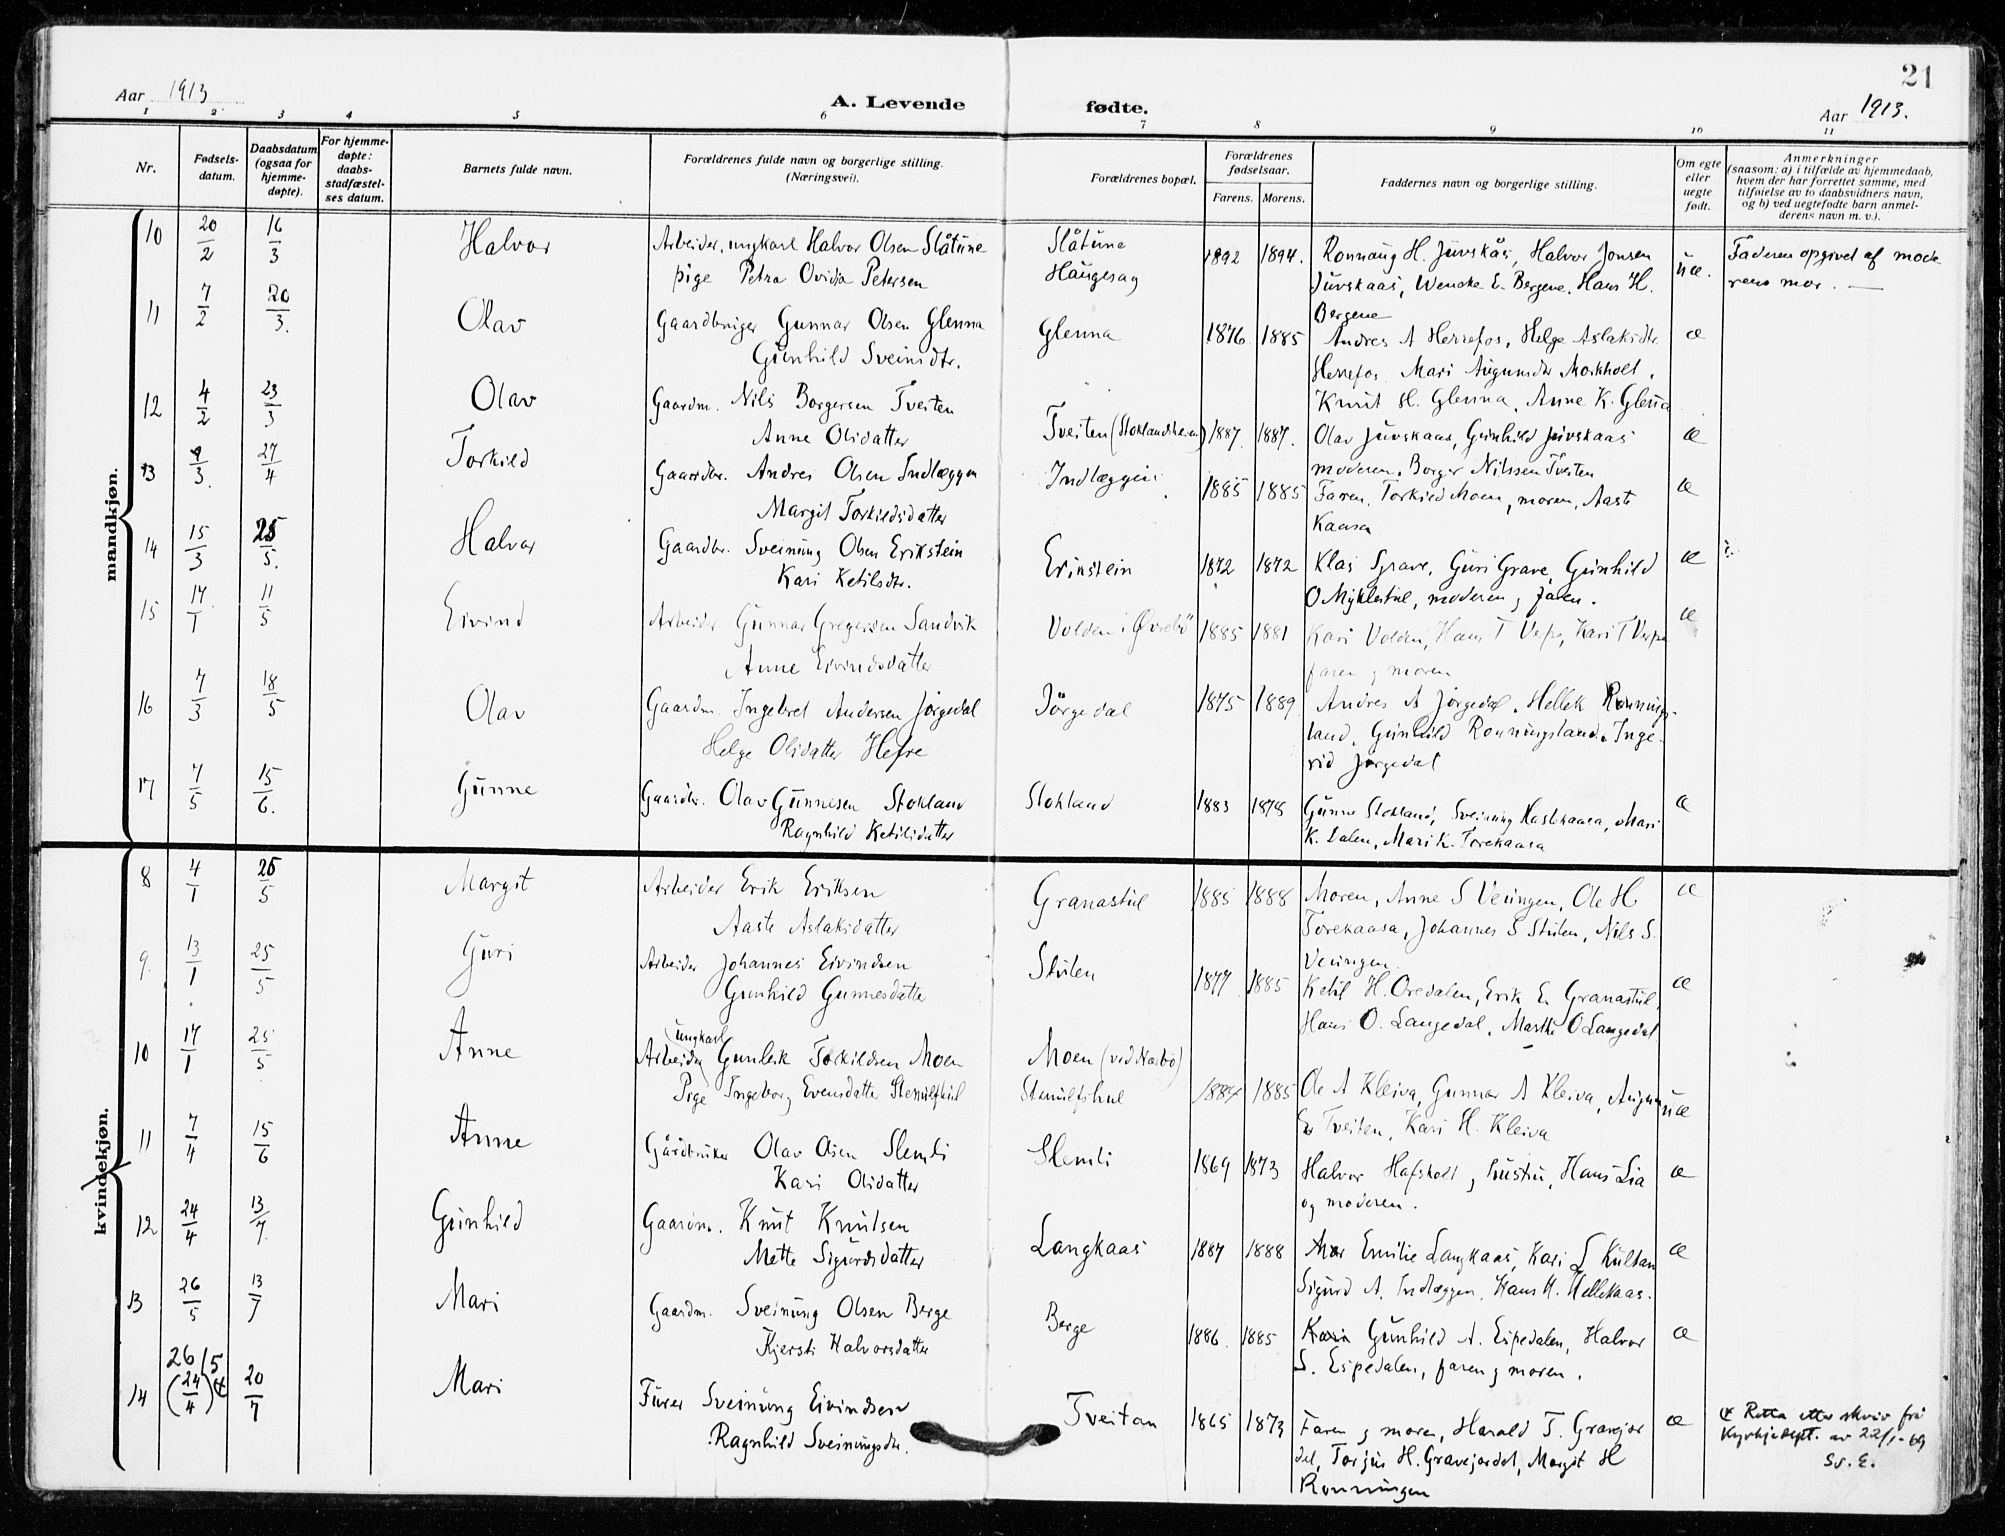 21
Aar 1913
A. Levende fødte.
Aar 1913.
1 2 3 4 5 6 7 8 9 10 11
Nr.
Fødsels-
datum.
Daabsdatum
(ogsaa for
hjemme-
døpte).
For hjemme-
døpte:
daabs-
stadfæstel-
ses datum.
Barnets fulde navn.
Forældrenes fulde navn og borgerlige stilling.
(Næringsvei).
Forældrenes bopæl.
Forældrenes
fødselsaar.
Farens. Morens.
Faddernes navn og borgerlige stilling.
Om egte
eller
uegte
født.
Anmerkninger
(saasom: a) i tilfælde av hjemmedaab,
hvem der har forrettet samme, med
tilføielse av to daabsvidners navn,
og b) ved uegtefødte barn anmel-
derens navn m. v.).
mandkjøn.
10 20/2 16/3 Halvor Arbeider, ungkarl Halvor Olsen Slåtune Slåtune 1892 1894. Ronnaug H. Juvskås, Halvor Jonsen uæ. Faderen opgivet af mode-
pige Petra Ovidia Petersen Haugesag Juvskaas, Wencke E. Bergene. Hans H. rens mor. —
Bergene
11 7/2 20/3. Olav Gaardbruger Gunnar Olsen Glenna Glenna 1876 1885 Andres A Herrefos, Helge Aslaksdtr. æ
Gunhild Sveinsdtr. Herrefos Mari Augunsdtr Morkholt.
Knut H. Glenna, Anne K. Glenna
12 4/2 23/3 Olav Gaardm. Nils Borgersen Tveiten Tveiten (Stoklandheien) 1887. 1887. Olav Juvskaas, Gunhild Juvskaas æ
Anne Olidatter moderen, Borger Nilssen Tveiten
13 9/3. 27/4 Torkild Gaardbr. Andres Olsen Indlæggen Indlæggen 1885 1885 Faren, Torkild Moen, moren, Aaste æ
Margit Torkildsdatter Kaasa
14 15/3 25/5. Halvor Gaardbr. Sveinung Olsen Erikstein Erikstein 1872 1872 Klas Grave, Guri Grave, Gunhild æ
Kari Ketilsdtr. O Myklestul, moderen, faren.
15 17/1 11/5 Eivind Arbeider Gunnar Gregersen Sandvik Volden i Øvrebö 1885 1881 Kari Volden, Hans T Vepe, Kari T Vepe æ
Anne Eivindsdatter faren, moren
16 7/3 18/5 Olav Gaardm. Ingebret Andersen Jørgedal Jörgedal 1875 1889 Andres A Jørgedal, Hellek Rønnings-
Helge Olidatter Hefre land, Gunhild Rønningsland, Inge-
rid Jørgedal
17 7/5 15/6. Gunne Gaardbr. Olav Gunnesen Stokland Stokland 1883 1878 Gunne Stokland, Sveinung Haslekaasa, Mari æ
Ragnhild Ketilsdatter K. Dalen, Mari K. Torekaasa
kvindekjøn.
8 4/1 25/5 Margit Arbeider Erik Eriksen Granastul 1885 1888 Moren, Anne S Veungen, Ole H æ
Aaste Aslaksdatter Torekaasa, Johannes S Stulen, Nils S.
Veungen.
9. 13/1 25/5 Guri Arbeider Johannes Eivindsen Stulen 1877 1885 Ketil H. Oredalen, Erik E. Granastul, æ
Gunhild Gunnesdatter Hans O. Langedal, Marthe O Langedal
10 17/1 25/5 Anne ungkarl
Arbeider Gunleik Torkildsen Moen Moen (ved Nærbö)
Pige Ingeborg Evensdatter Stenulfhul Stenulfshul 1884 1885 Ole A Kleiva, Gunnar A Kleiva, Augun uæ
E. Tveiten, Kari H. Kleiva
11 7/4 15/6 Anne Gårdbruker Olav Olsen Slemli Slemli 1869 1873 Halvor Hafskolt, hustru, Hans Lia æ
Kari Olidatter og moderen.
12 24/4 13/7. Gunhild Gaardm. Knut Knutsen Langkaas 1887 1888 Emilie Langkaas, Kari S Kultan æ
Mette Sigurdsdatter Sigurd A. Indlæggen, Hans H. Hellekaas.
13 26/5 13/7 Mari Gaardm. Sveinung Olsen Berge Berge 1886. 1885 Gunhild A. Espedalen, Halvor æ
Kjersti Halvorsdatter S. Espedalen, faren, moren.
14 26/5 (24/4) 20/7 Mari Furer Sveinung Eivindsen Tveitan 1865 1873 Faren, moren, Harald T. Gravejor æ Retta etter skriv frå
Ragnhild Sveinungsdtr. del, Torjus H. Gravejordet, Margit H Kyrkjedept. av 22/1-69
Rønningen Sv. E.